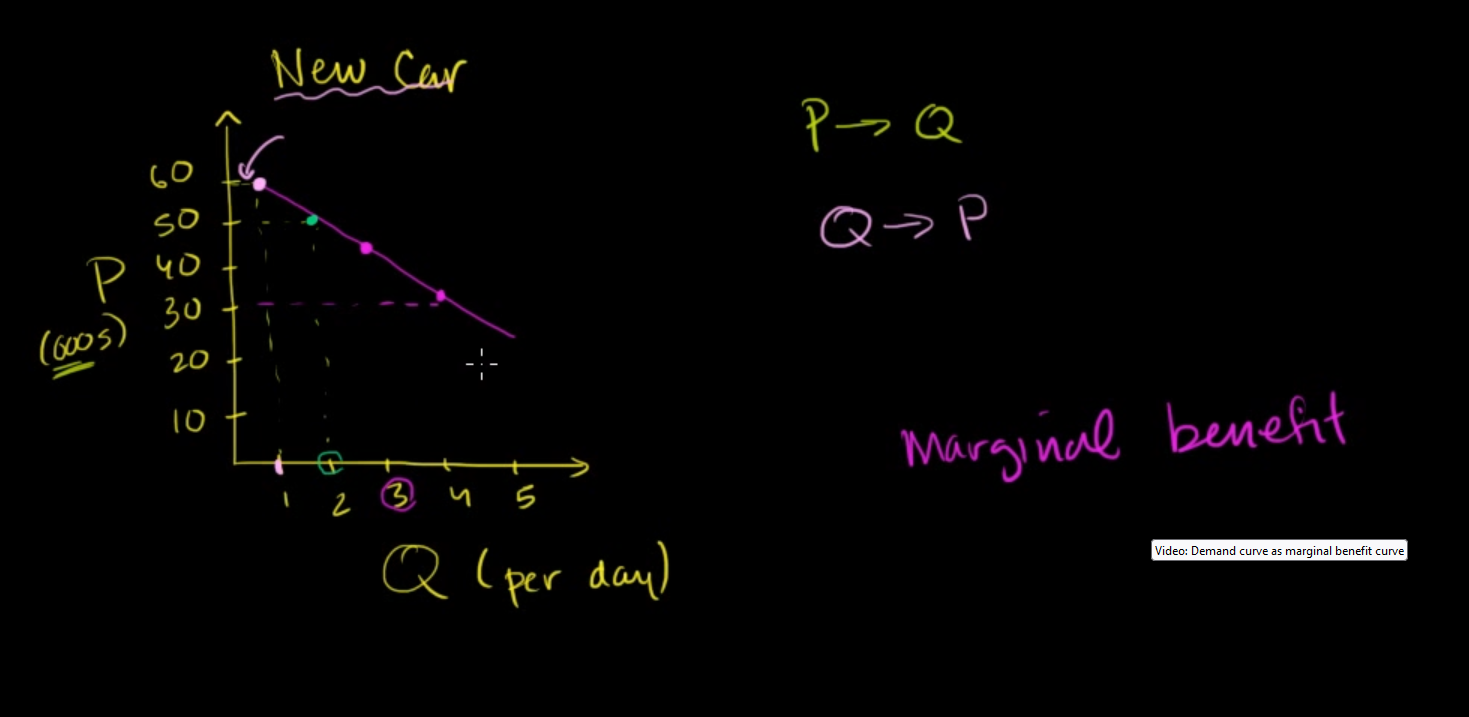 New Car
P → Q
Q → P
60
50
40
30
20
10
P
(000s)
1 2 3 4 5
Q (per day)
Marginal benefit
Video: Demand curve as marginal benefit curve